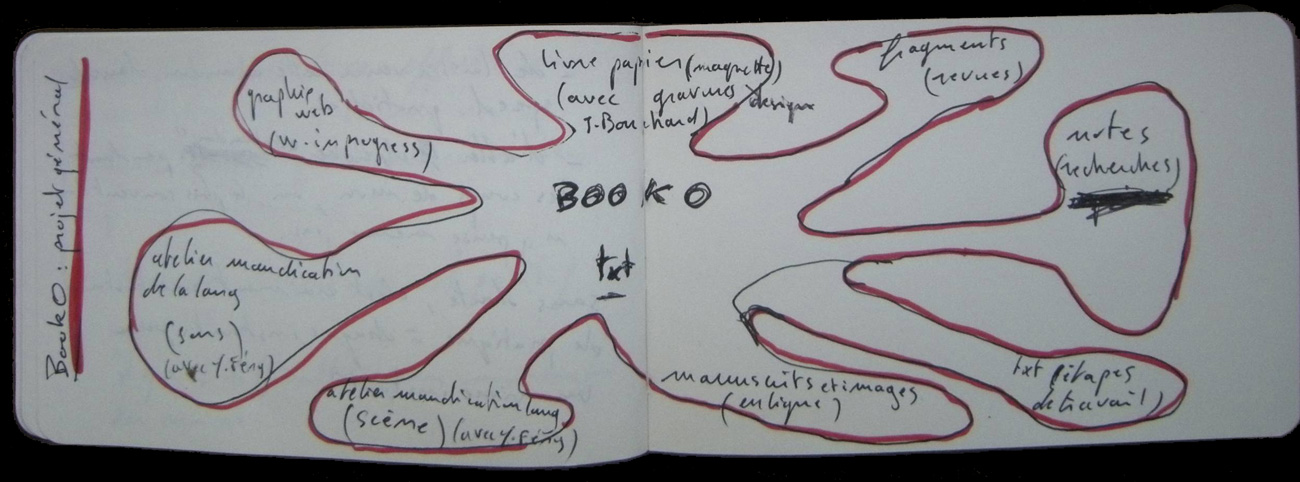 BookO : projet général
graphie
web
(w-in progress)
livre papier (maquette)
(avec gravures
J. Bouchard)
design
fragments
(revues)
notes
(recherches)
BOOKO
txt
atelier mandication
de la lang
(sens)
(avec Y. Fény)
atelier mandication lang
(scène) (avec Y. Fény)
manuscrits et images
(en ligne)
txt
étapes
de travail)